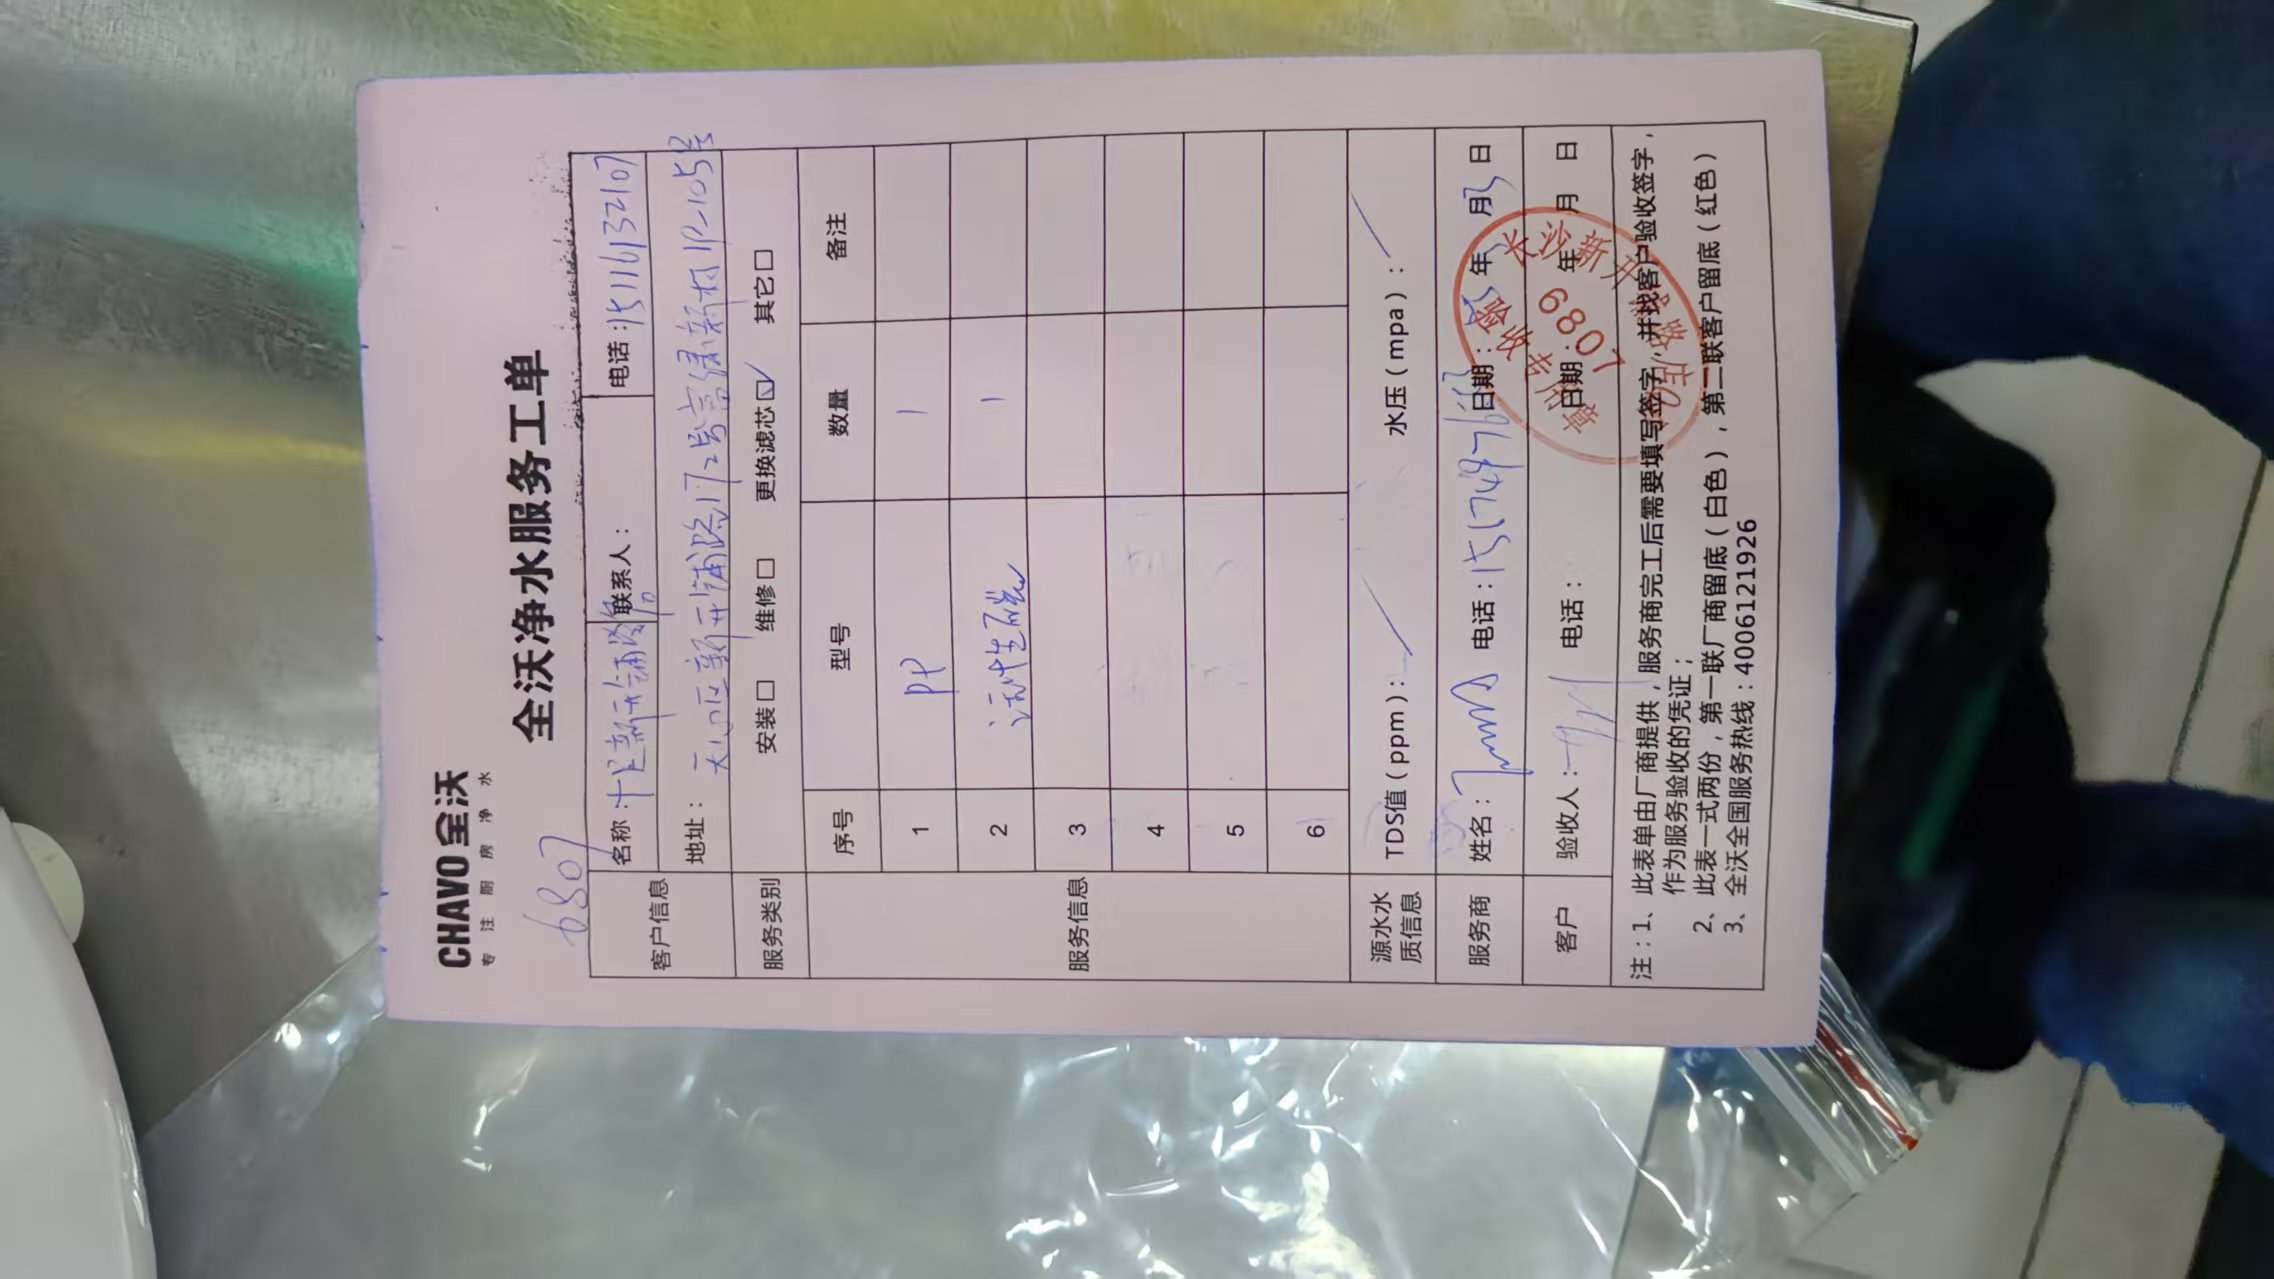 CHAVO 全沃
专注厨房净水
全沃净水服务工单
6807
客户信息 名称: 联系人: 电话:151116132107
地址: 天心区新开铺路172号 新村1P-105号
服务类别 安装□ 维修□ 更换滤芯☑ 其它□
服务信息 序号 型号 数量 备注
1 PP 1
2 活性炭 1
3
4
5
6
源水水质信息 TDS值(ppm): 水压(mpa):
服务商 姓名: 电话: 日期: 年 月 日
客户 验收人: 电话: 日期: 年 月 日
长沙新开铺
6807
验收专用章
注:1、此表单由厂商提供,服务商完工后需要填写签字,并找客户验收签字,
作为服务验收的凭证;
2、此表一式两份,第一联厂商留底(白色),第二联客户留底(红色)
3、全沃全国服务热线:4006121926